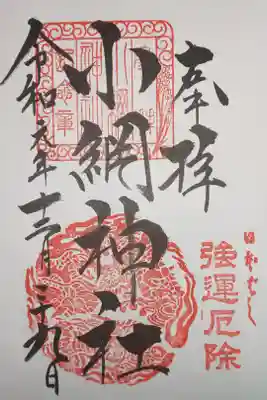 奉拝
日本ばし
強運厄除
小網神社
令和元年十二月二十九日